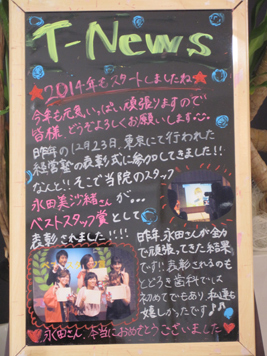 T-News
★2014年もスタートしましたね★
今年も元気いっぱい頑張りますので
皆様どうぞよろしくお願いします
昨年の12月23日、東京にて行われた
経営塾の表彰式に参加してきました!!
なんと!! そこで当院のスタッフ
永田美沙緒さんが…
ベストスタッフ賞として
表彰されました!!!!
昨年永田さんが全力
で頑張ってきた結果
です!! 表彰されるのも
とどろき歯科では
初めてでもあり私達も
嬉しかったです♪
♥永田さん、本当におめでとうございました♥